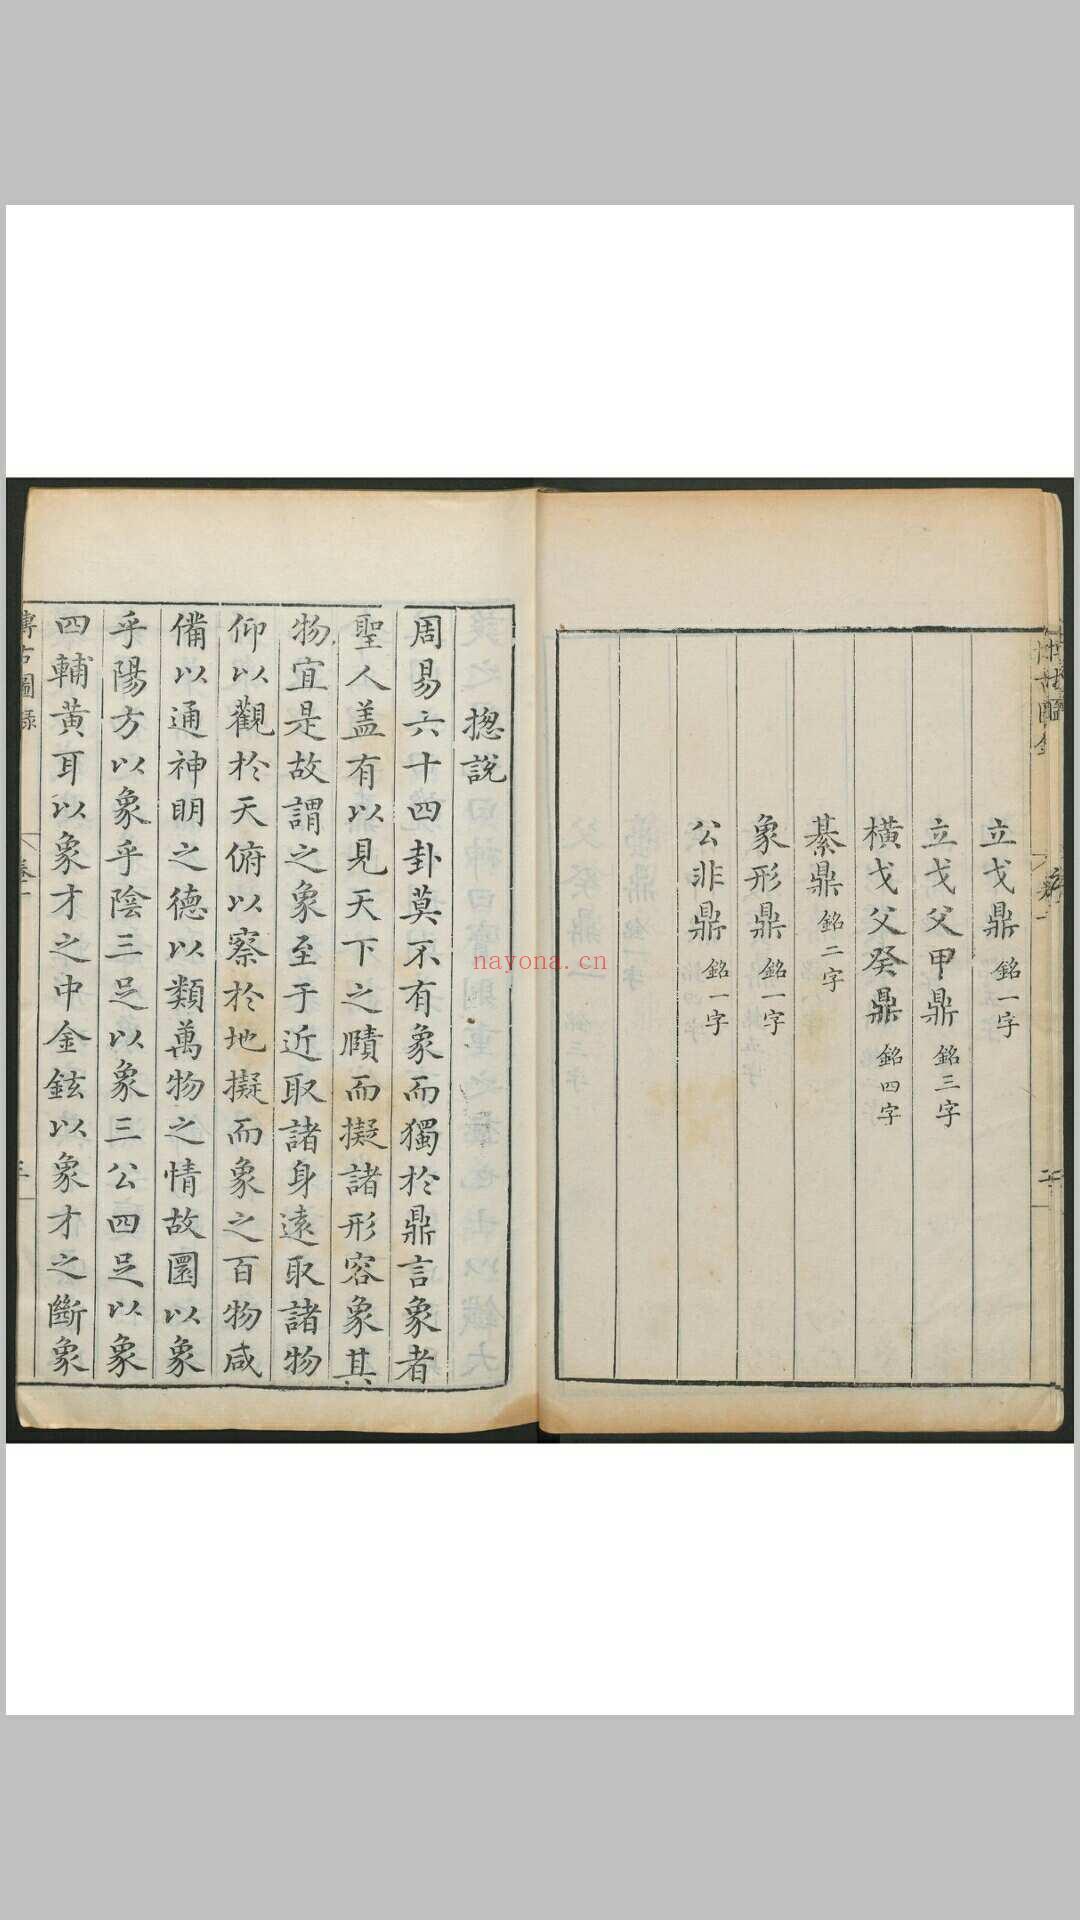 立戈鼎 銘一字
立戈父甲鼎 銘三字
橫戈父癸鼎 銘四字
綦鼎 銘二字
象形鼎 銘一字
公非鼎 銘一字
揔說
周易六十四卦莫不有象而獨於鼎言象者
聖人蓋有以見天下之賾而擬諸形容象其
物宜是故謂之象至于近取諸身遠取諸物
仰以觀於天俯以察於地擬而象之百物咸
備以通神明之德以類萬物之情故圜以象
乎陽方以象乎陰三足以象三公四足以象
四輔黃耳以象才之中金鉉以象才之斷象
nayona.cn